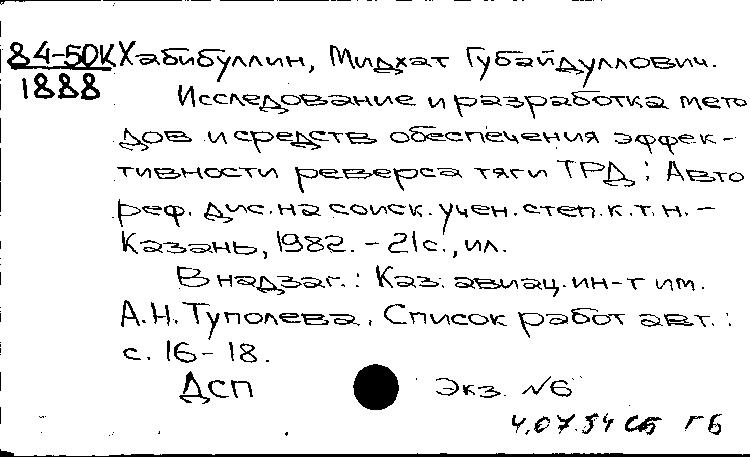 84-50К Хабибуллин, Мидхат Губайдуллович.
1888
Исследование и разработка мето
дов и средств обеспечения эффек-
тивности реверса тяги ТРД : Авто
реф. дис. на соиск. учен. степ. к. т. н. -
Казань, 1982. - 21 с., ил.
В надзаг. : Каз. авиац. ин-т им.
А. Н. Туполева. Список работ авт. :
с. 16 - 18.
ДСП Экз. №6
4.07.84 ГБ